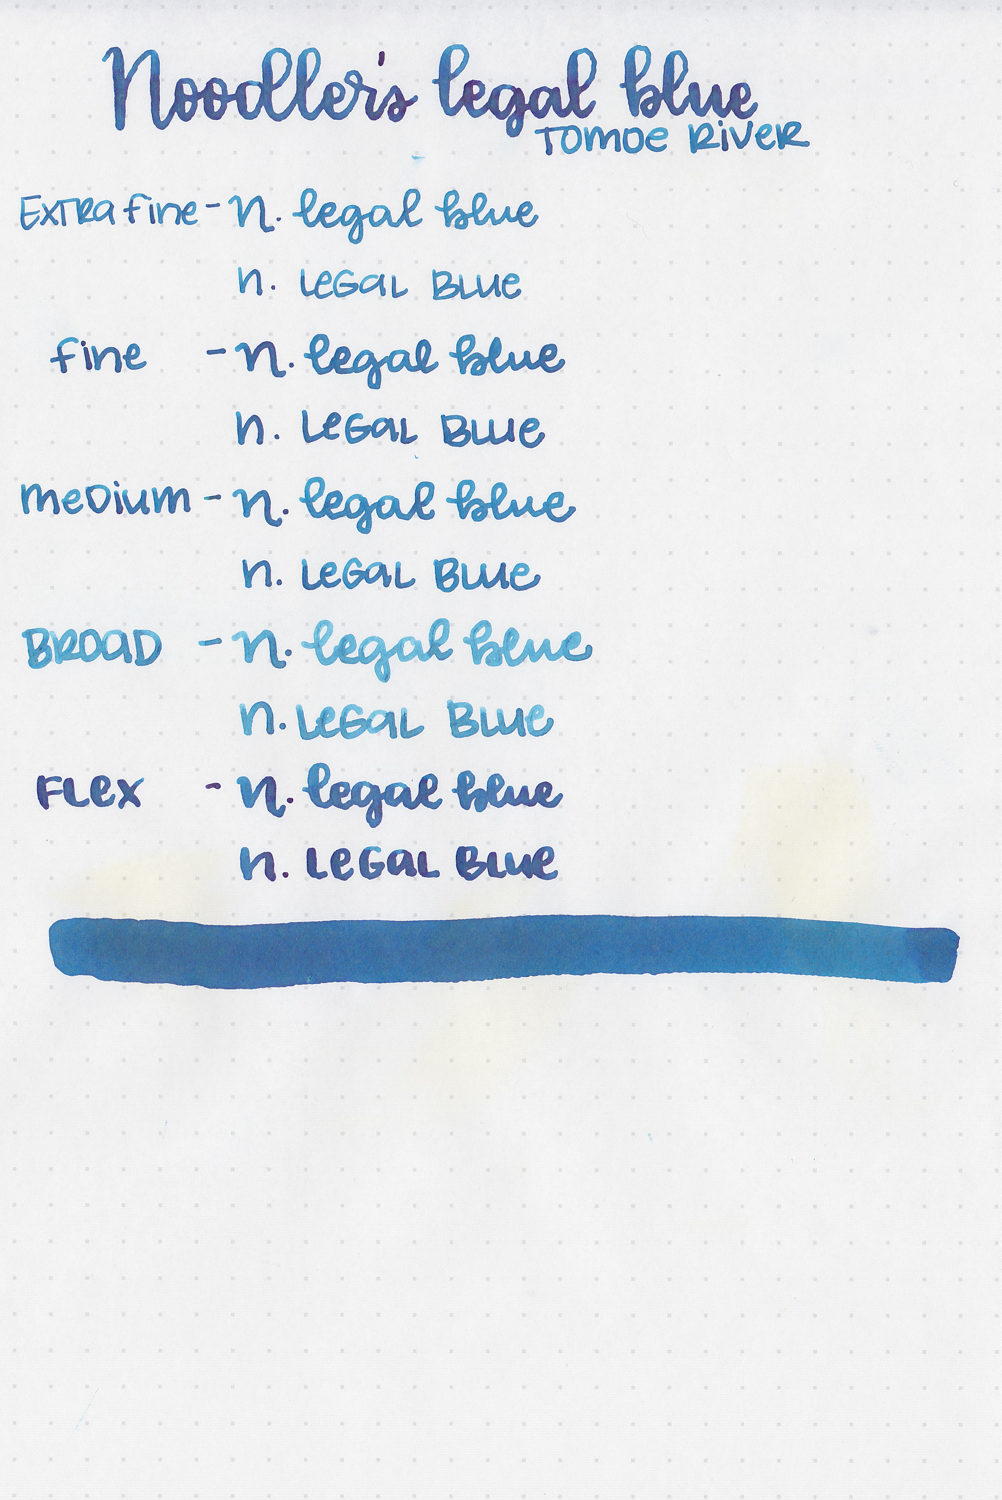 Noodler's legal blue
Tomoe River
Extra fine - n. legal blue
n. Legal Blue
fine - n. legal blue
n. Legal Blue
medium - n. legal blue
n. Legal Blue
Broad - n. legal blue
n. Legal Blue
Flex - n. legal blue
n. Legal Blue